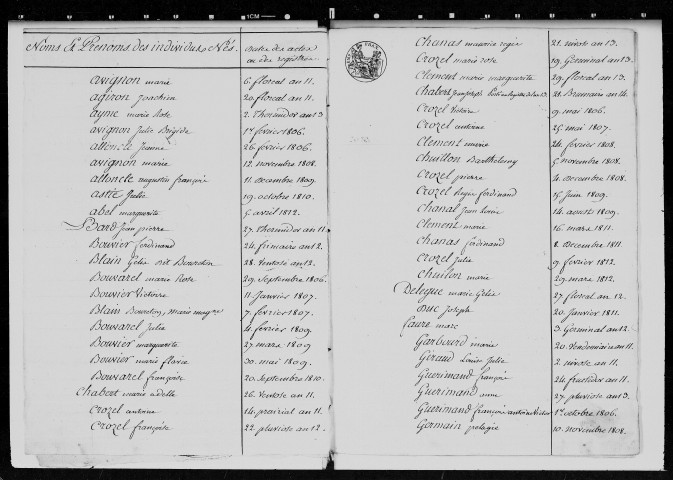 1CM
Noms & Prenoms des individus Nés.
Dates des actes
ou des registres
avignon marie 6 floreal an 11.
agiron joachim 20 floreal an 11.
ayme marie Rose 2. Thermidor an 13.
avignon Julie Brigide 1er février 1806.
alloncle Jeanne 26 février 1806.
avignon marie 12 novembre 1808.
alloncle augustin françois 11 decembre 1809
astic Julie 19 octobre 1810.
abel marguerite 5 avril 1812.
Bard Jean pierre 27 Thermidor an 11.
Bouvier ferdinand 24 frimaire an 12.
Blain Gelie 28. Ventose an 12.
Bouvarel marie Rose 29. Septembre 1806.
Bouvier Victoire 11 Janvier 1807.
Blain Bourdon, marie 7. février 1807.
Bouvarel Julie 4 février 1809
Bouvier marguerite 27 mars 1809
Bouvier marie flavie 30. mai 1809.
Bouvarel françoise 20 Septembre 1810.
Chabert marie adelle 26. Ventose an 11.
Crozel antoine 14 prairial an 11.
Crozel françoise 22. pluviose an 12.
Chanas maurice regis 21. nivose an 13.
Crozel marie rose 19. Germinal an 13.
Clement marie marguerite 29. floreal an 13.
Chabert Jean joseph 21. Brumaire an 14.
Crozel Victoire 9. mai 1806.
Crozel antoine 25 mai 1807.
Clement marie 24. février 1808.
Chuillon Barthelemy 5 novembre 1808.
Crozel pierre 4 decembre 1808.
Crozel Regis ferdinand 15 juin 1809.
Chanal Jean Louis 14. aout 1809.
Clement marie 16 mars 1811.
Chanas ferdinand 8. decembre 1811.
Crozel Julie 9 février 1812.
Chuilon marie 29. mars 1812.
Delegue marie Gelie 27 floreal an 12.
Duc Joseph 20 janvier 1811.
Faure marc 3 Germinal an 12.
Garbourd marie 20 Vendemiaire an 11.
Giraud Louise Julie 2. nivose an 11.
Guerimand françois 24. fructidor an 11.
Guerimand anne 27 pluviose an 13.
Guerimand françois antoine Victor 1er octobre 1806.
Germain pelagie 10. novembre 1808.